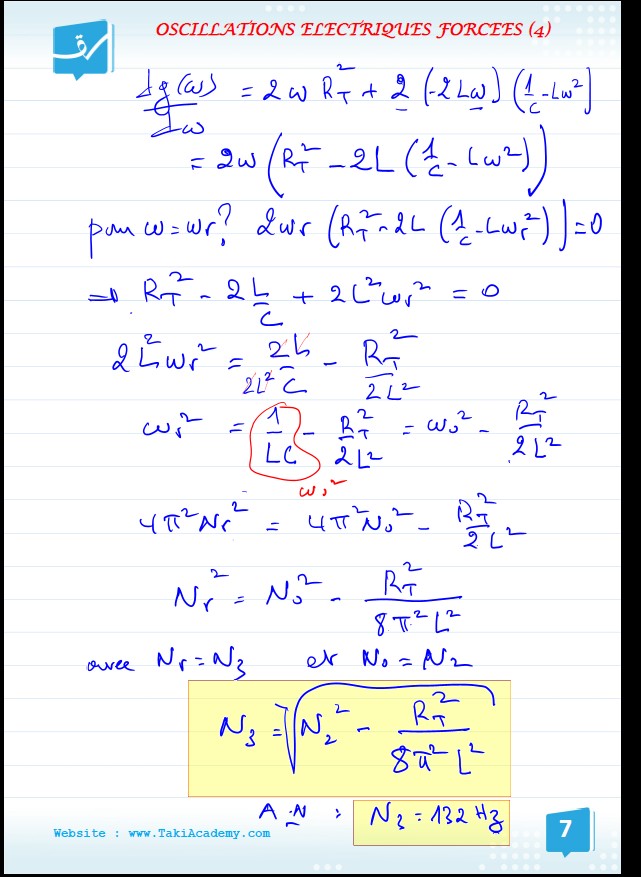 OSCILLATIONS ELECTRIQUES FORCEES (4)
dg(ω)/dω = 2ω R_T² + 2 (-2Lω) (1/C - Lω²)
= 2ω (R_T² - 2L (1/C - Lω²))
pour ω = ωr ? 2ωr (R_T² - 2L (1/C - Lωr²)) = 0
⇒ R_T² - 2L/C + 2L²ωr² = 0
2L²ωr² = 2L/2L²C - R_T²/2L²
ωr² = 1/LC - R_T²/2L² = ω₀² - R_T²/2L²
ω₀²
4π²Nr² = 4π²N₀² - R_T²/2L²
Nr² = N₀² - R_T²/8π²L²
avec Nr = N₃ et N₀ = N₂
N₃ = √(N₂² - R_T²/8π²L²)
A.N : N₃ = 132 Hz
Website : www.TakiAcademy.com
7